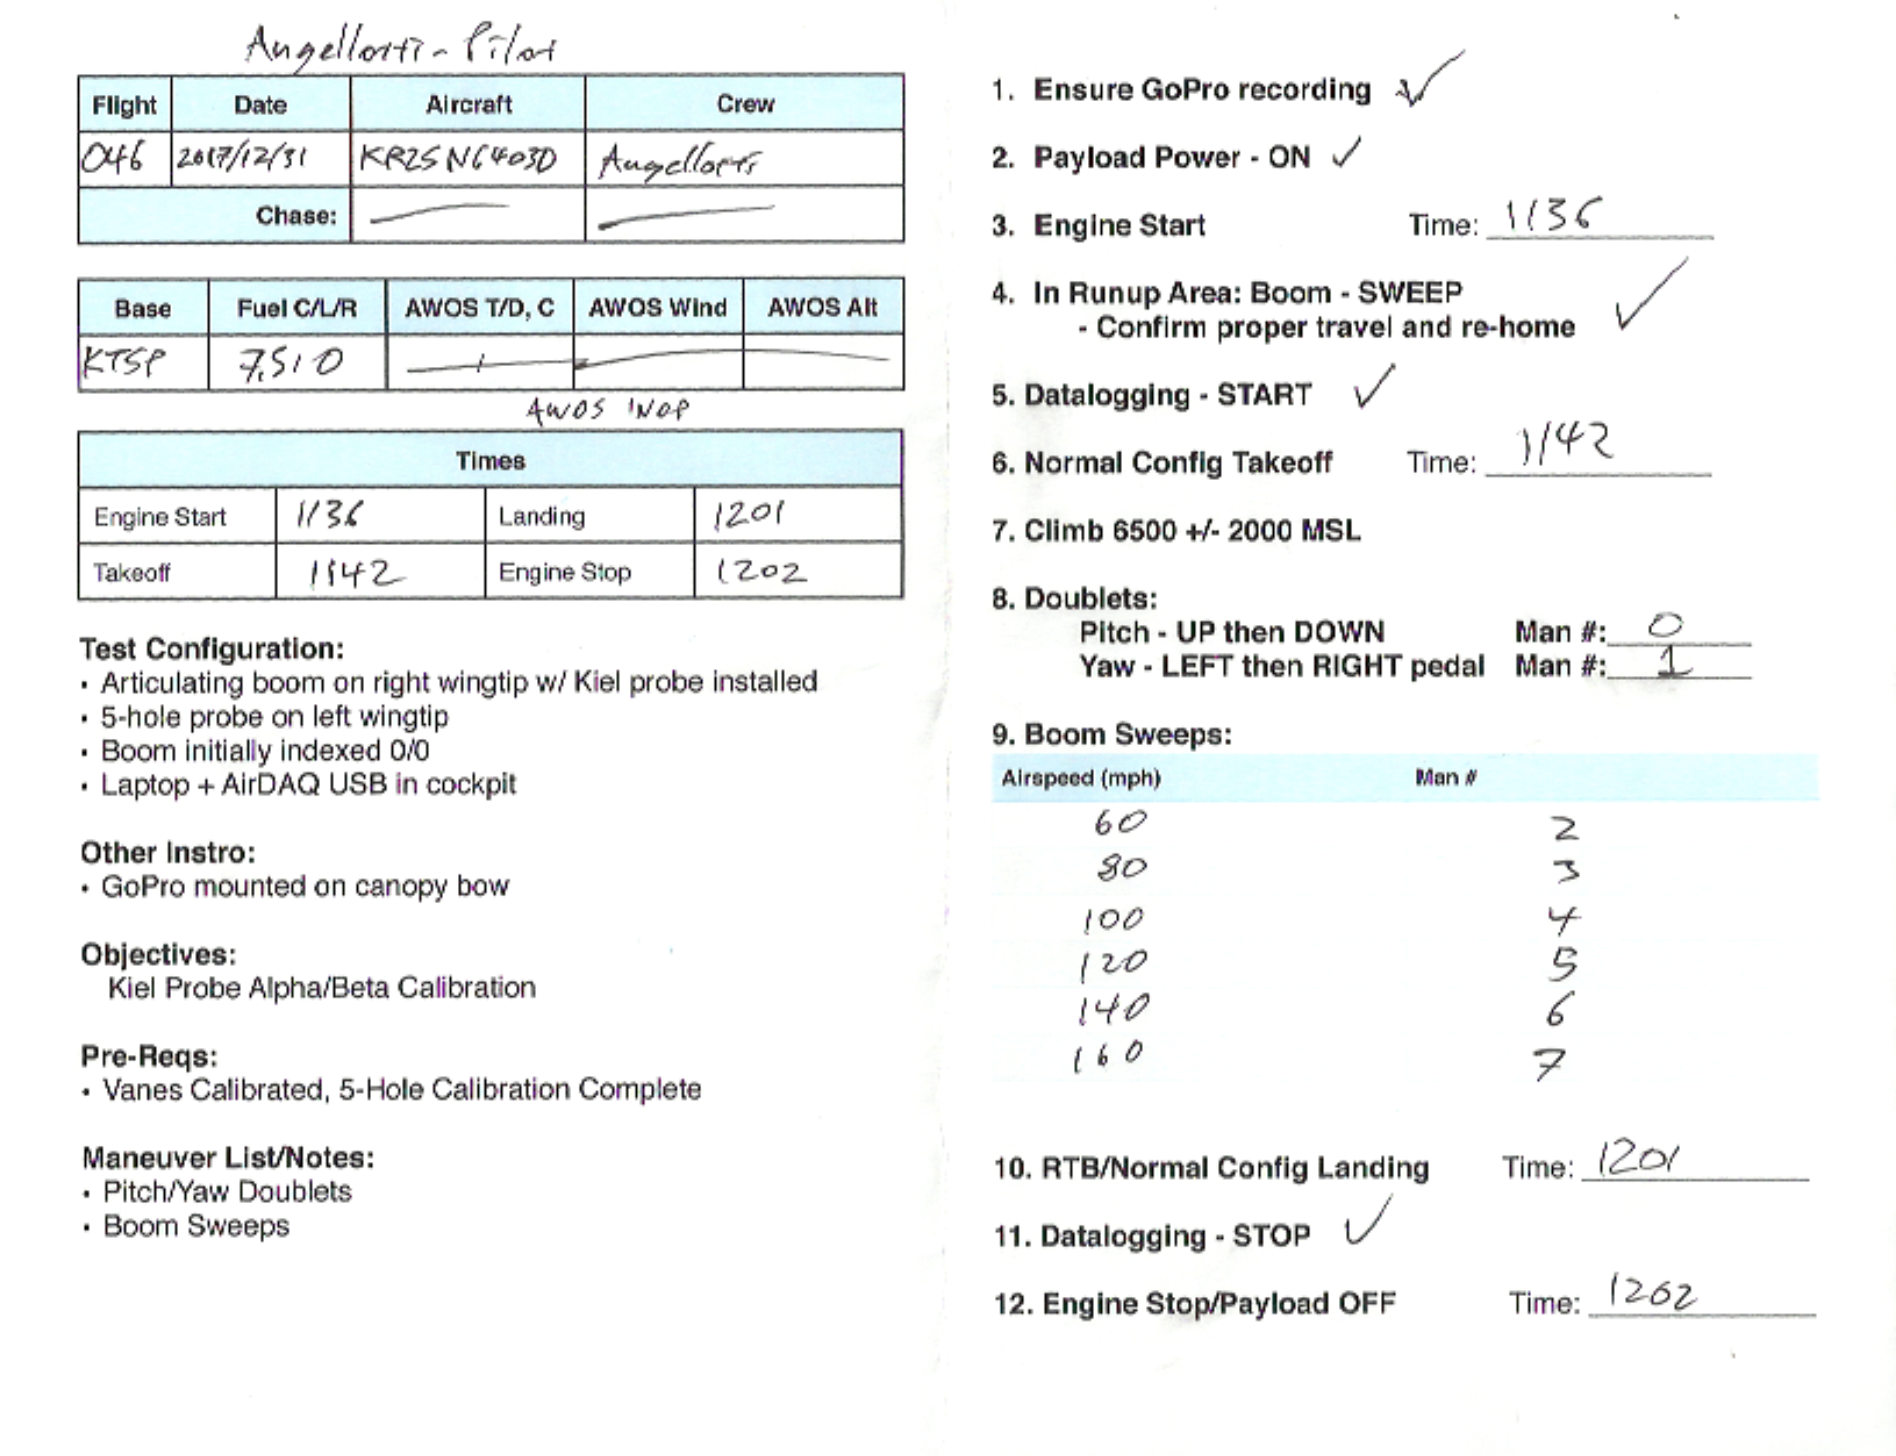 Angellotti - Pilot
Flight Date Aircraft Crew
046 2017/12/31 KR2S N6403D Angellotti
Chase:
Base Fuel C/L/R AWOS T/D, C AWOS Wind AWOS Alt
KTSP 7.5/0
AWOS INOP
Times
Engine Start 1136 Landing 1201
Takeoff 1142 Engine Stop 1202
Test Configuration:
• Articulating boom on right wingtip w/ Kiel probe installed
• 5-hole probe on left wingtip
• Boom initially indexed 0/0
• Laptop + AirDAQ USB in cockpit
Other Instro:
• GoPro mounted on canopy bow
Objectives:
Kiel Probe Alpha/Beta Calibration
Pre-Reqs:
• Vanes Calibrated, 5-Hole Calibration Complete
Maneuver List/Notes:
• Pitch/Yaw Doublets
• Boom Sweeps
1. Ensure GoPro recording ✓
2. Payload Power - ON ✓
3. Engine Start Time: 1136
4. In Runup Area: Boom - SWEEP
- Confirm proper travel and re-home ✓
5. Datalogging - START ✓
6. Normal Config Takeoff Time: 1142
7. Climb 6500 +/- 2000 MSL
8. Doublets:
Pitch - UP then DOWN Man #: 0
Yaw - LEFT then RIGHT pedal Man #: 1
9. Boom Sweeps:
Airspeed (mph) Man #
60 2
80 3
100 4
120 5
140 6
160 7
10. RTB/Normal Config Landing Time: 1201
11. Datalogging - STOP ✓
12. Engine Stop/Payload OFF Time: 1202